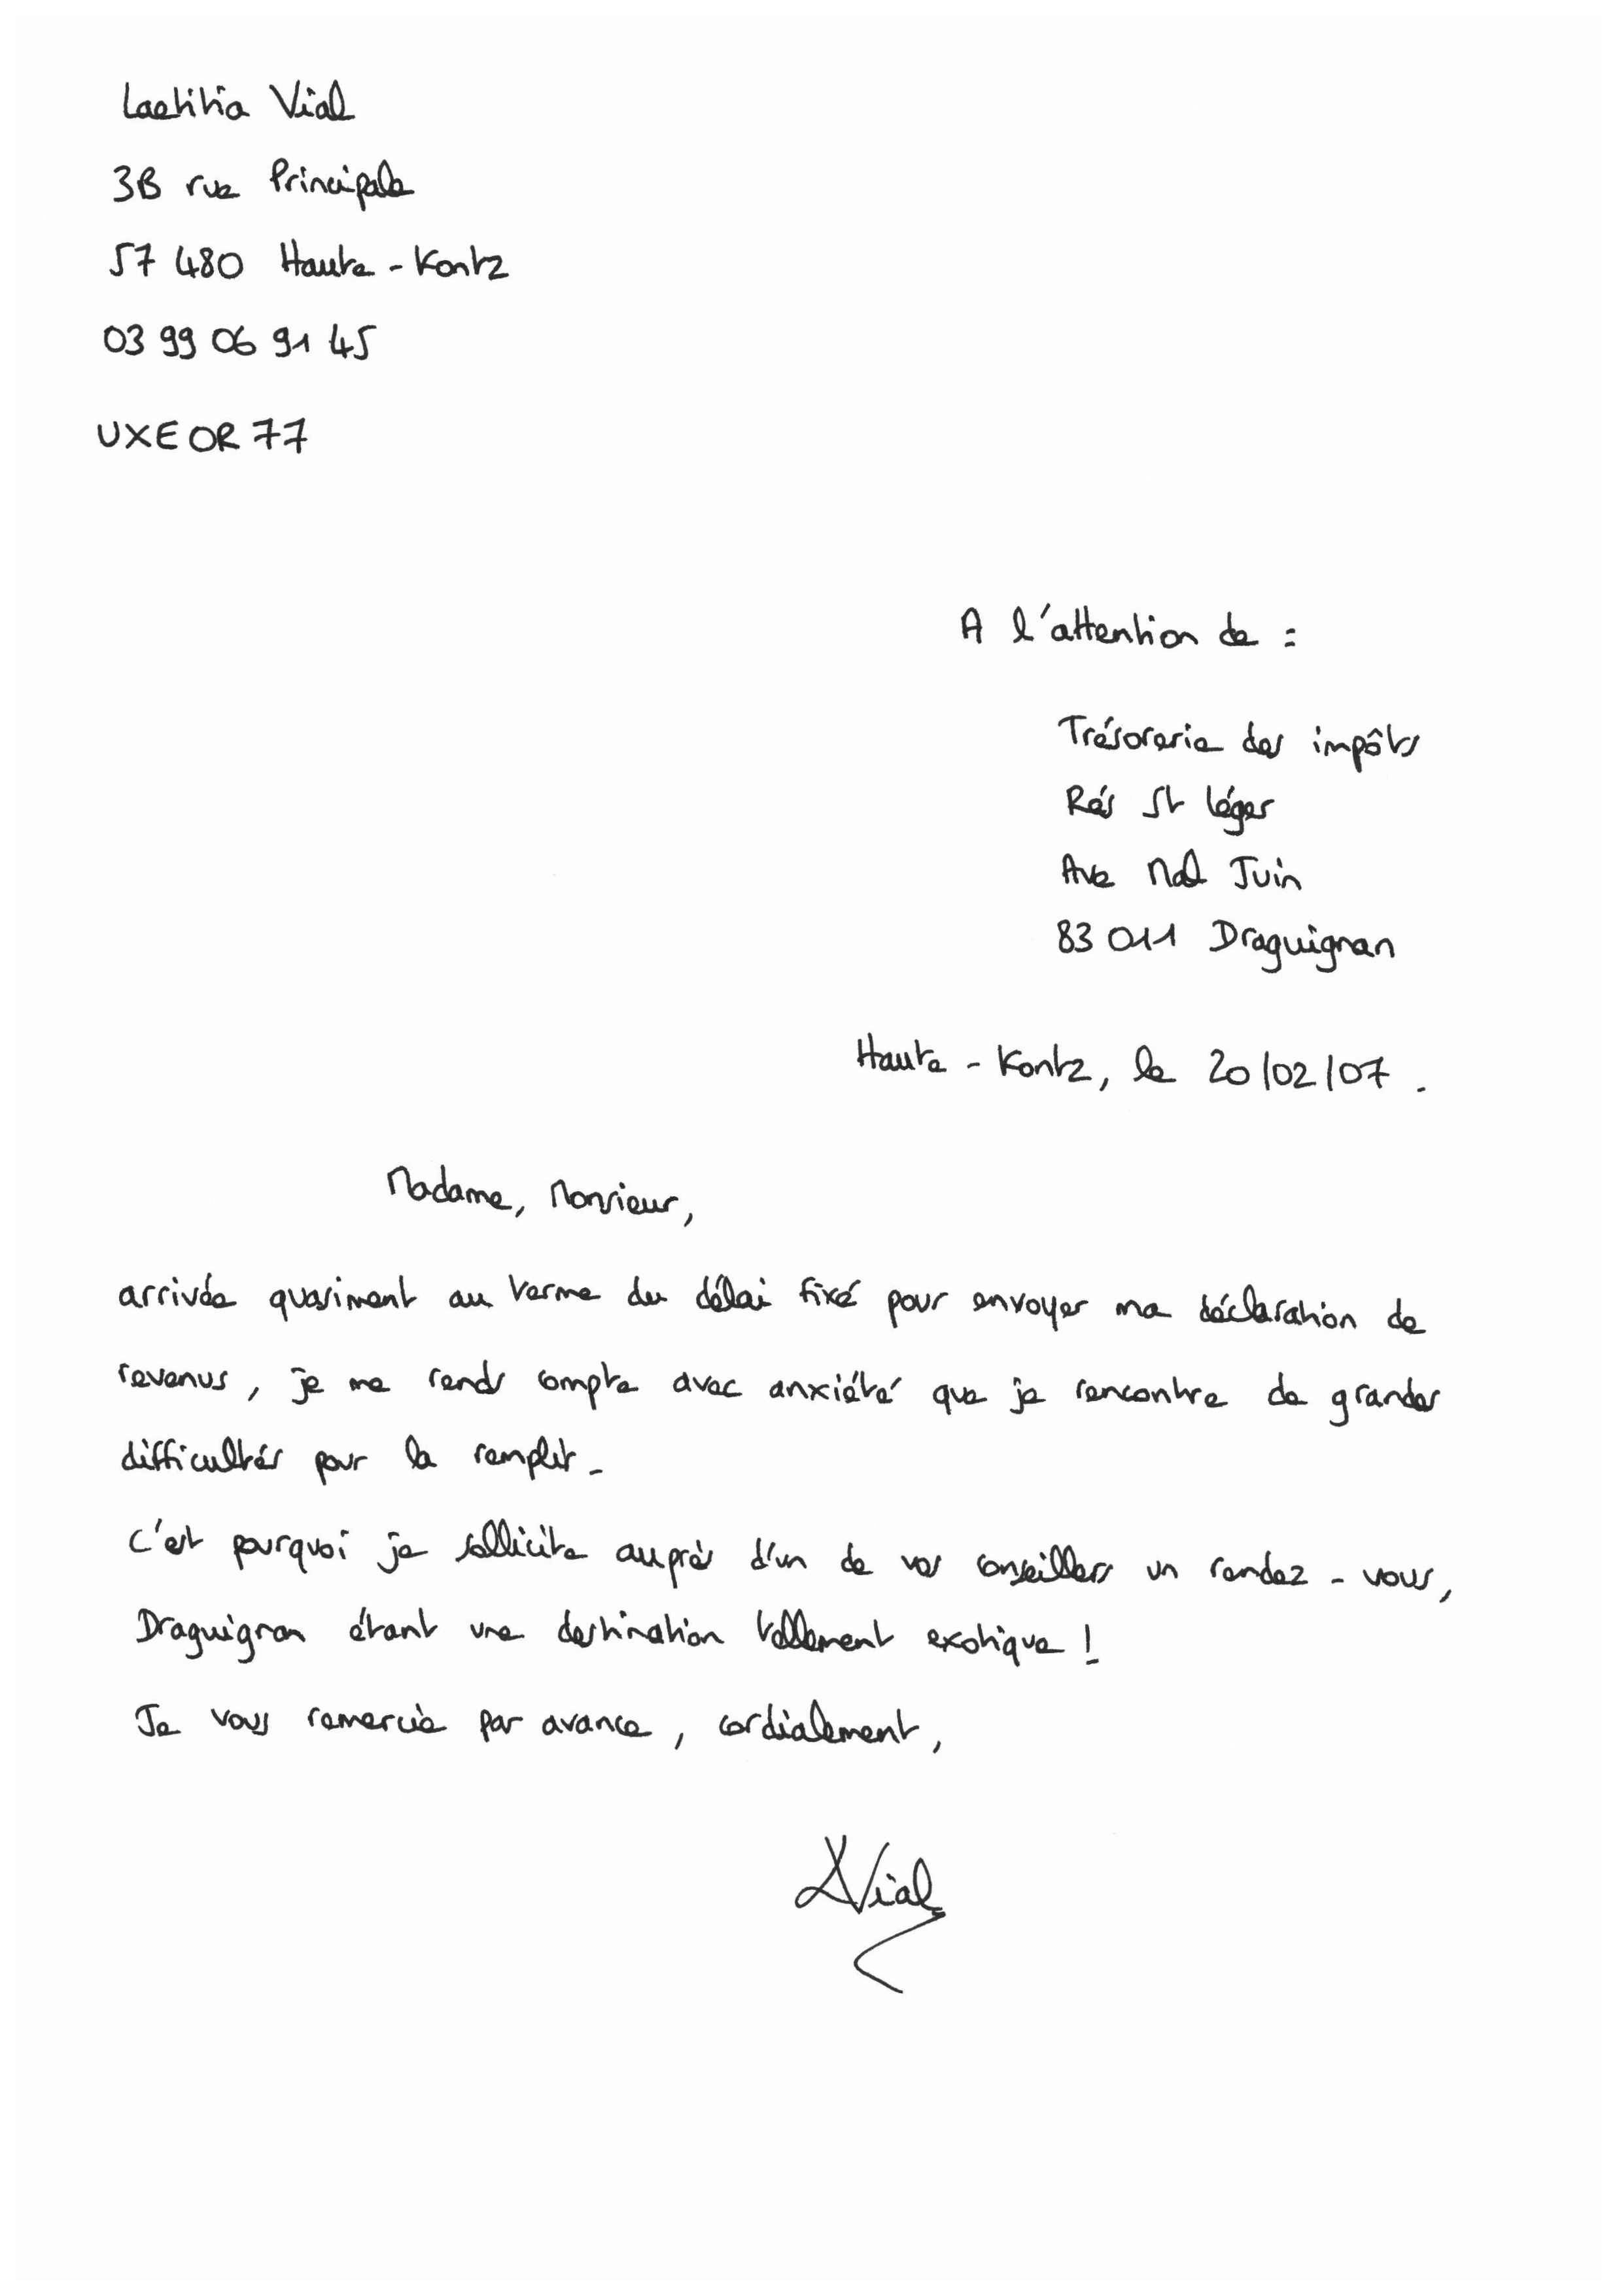 Laetitia Vial
3B rue Principale
57 480 Haute - Kontz
03 99 06 91 45
UXEOR77
A l'attention de :
Trésorerie des impôts
Rés St Léger
Ave Mal Juin
83 011 Draguignan
Haute - Kontz, le 20/02/07.
Madame, Monsieur,
arrivée quasiment au terme du délai fixé pour envoyer ma déclaration de
revenus, je me rends compte avec anxiété que je rencontre de grandes
difficultés pour la remplir.
C'est pourquoi je sollicite auprès d'un de vos conseillers un rendez - vous,
Draguignan étant une destination tellement exotique !
Je vous remercie par avance, cordialement,
LVial